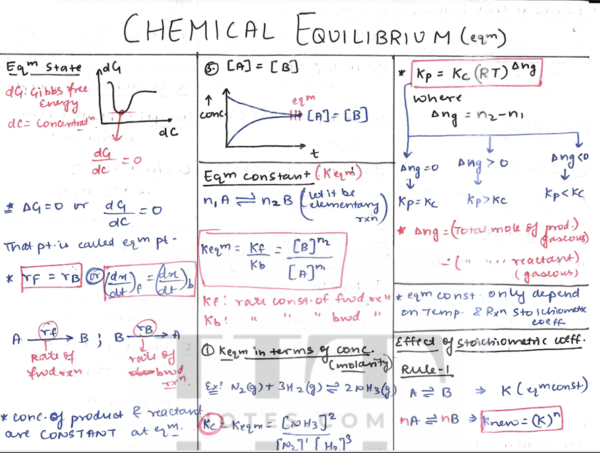 CHEMICAL EQUILIBRIUM (eqm)
Eqm State
dG
dG: Gibbs free
Energy
dC = Concentratn
dC
dG/dC = 0
* ΔG = 0 or dG/dC = 0
That pt. is called eqm pt.
* rF = rB or (dx/dt)f = (dx/dt)b
A —rf→ B ; B —rB→ A
Rate of
fwd rxn
rate of
bwd
rxn.
* conc. of product & reactant
are CONSTANT at eqm.
⑤ [A] = [B]
↑
conc.
eqm
[A] = [B]
t
Eqm constant (Keqm)
n₁A ⇌ n₂B (let it be
elementary
rxn)
Keqm = Kf/Kb = [B]^n₂/[A]^n₁
Kf: rate const. of fwd rxn
Kb: " " " bwd "
① Keqm in terms of conc.
(molarity)
Eg: N₂(g) + 3H₂(g) ⇌ 2NH₃(g)
Kc = Keqm = [NH₃]²/[N₂]¹[H₂]³
NOTES.COM
* Kp = Kc (RT)^Δng
where
Δng = n₂ - n₁
Δng = 0 Δng > 0 Δng < 0
Kp = Kc Kp > Kc Kp < Kc
* Δng = (Total mole of prod.)
gaseous
- ( " " " reactant)
(gaseous)
* eqm const. only depend
on Temp. & Rxn Stoichiometic
coeff.
Effect of Stoichiometric coeff.
Rule-1
A ⇌ B ⇒ K (eqm const)
nA ⇌ nB ⇒ Knew = (K)^n